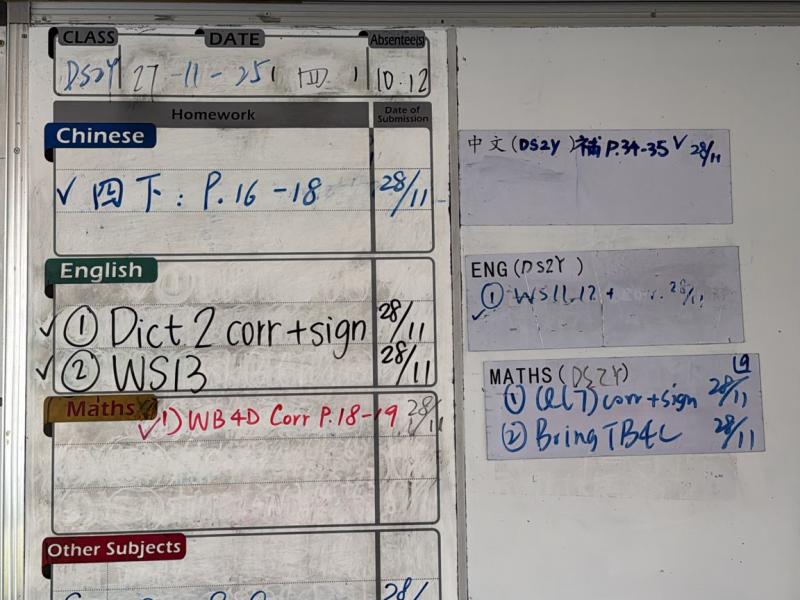 CLASS DATE Absentee(s)
DS2Y 27-11-25 四 10.12
Homework Date of Submission
Chinese
✓ 四下: P.16-18 28/11
English
✓ ① Dict 2 corr+sign 28/11
✓ ② WS13 28/11
Maths
✓ 1) WB4D Corr P.18-19 28/11
Other Subjects
28/
中文(DS2Y)補P.34-35 ✓ 28/11
ENG(DS2Y)
✓ ① WS11,12 + 28/11
MATHS(DS2Y) L9
① corr+sign 28/11
② Bring TB4C 28/11